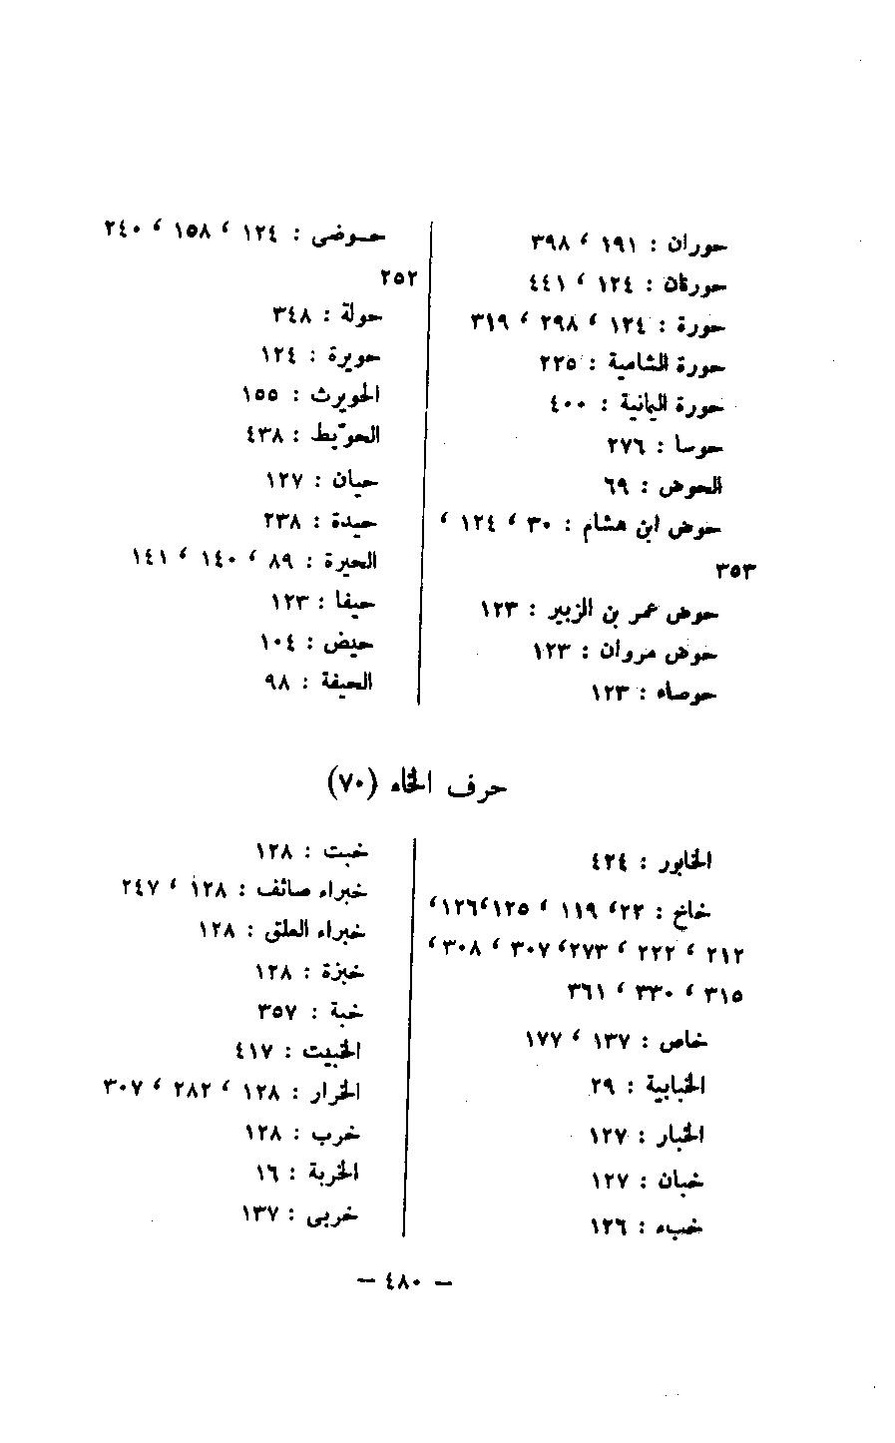 حوران : ١٩١ ، ٣٩٨
حورتان : ١٢٤ ، ٤٤١
حورة : ١٢٤ ، ٢٩٨ ، ٣١٩
حورة الشامية : ٢٢٥
حورة اليمانية : ٤٠٠
حوسا : ٢٧٦
الحوض : ٦٩
حوض ابن هشام : ٣٠ ، ١٢٤ ،
٣٥٣
حوض عمر بن الزبير : ١٢٣
حوض مروان : ١٢٣
حوصاء : ١٢٣
حوضى : ١٢٤ ، ١٥٨ ، ٢٤٠
٢٥٢
حولة : ٣٤٨
حويرة : ١٢٤
الحويرث : ١٥٥
الحويّط : ٤٣٨
حيان : ١٢٧
حيدة : ٢٣٨
الحيرة : ٨٩ ، ١٤٠ ، ١٤١
حيفا : ١٢٣
حيض : ١٠٤
الحيفة : ٩٨
حرف الخاء (٧٠)
الخابور : ٤٢٤
خاخ : ٢٢، ١١٩ ، ١٢٥،١٢٦،
٢١٢ ، ٢٢٢ ، ٢٧٣، ٣٠٧ ، ٣٠٨ ،
٣١٥ ، ٣٣٠ ، ٣٦١
خاص : ١٣٧ ، ١٧٧
الخبابية : ٢٩
الخبار : ١٢٧
خبان : ١٢٧
خبء : ١٢٦
خبت : ١٢٨
خبراء صائف : ١٢٨ ، ٢٤٧
خبراء العلق : ١٢٨
خبزة : ١٢٨
خبة : ٣٥٧
الخبيت : ٤١٧
الخرار : ١٢٨ ، ٢٨٢ ، ٣٠٧
خرب : ١٢٨
الخربة : ١٦
خربى : ١٣٧
— ٤٨٠ —